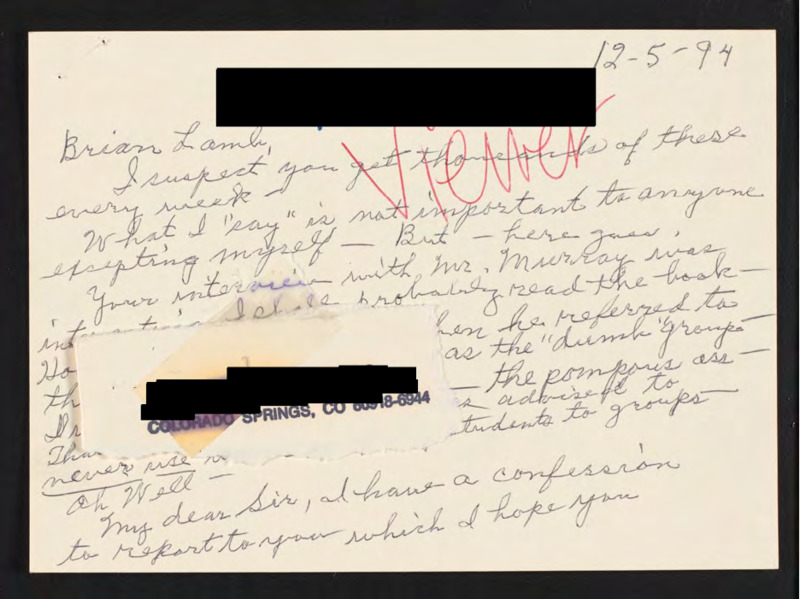 12-5-94
Viewer
Brian Lamb,
I suspect you get thousands of these
every week -
What I "say" is not important to anyone
excepting myself — But — here goes.
Your interview with Mr. Murray was
I shall probably read the book —
when he referred to
as the "dumb" group —
— the pompous ass —
advised to
COLORADO SPRINGS, CO 80918-6944
students to groups —
never use
Oh, Well —
My dear Sir, I have a confession
to report to you which I hope you